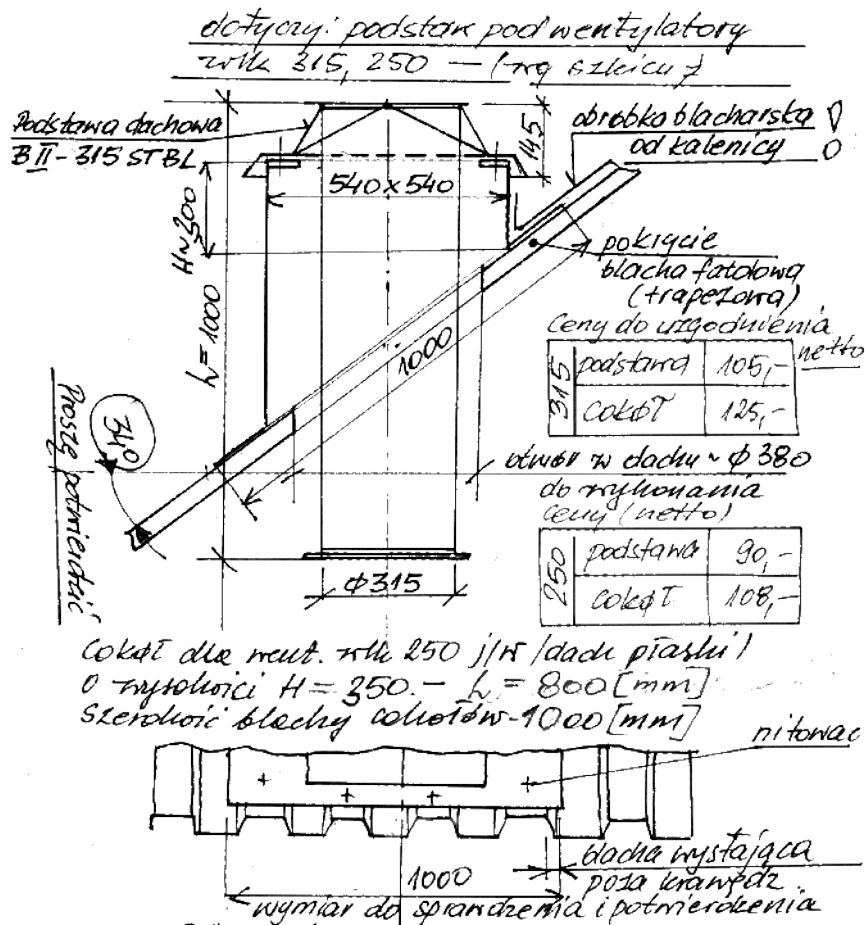 dotyczy: podstaw pod wentylatory
wlk 315, 250 — (wg szkicu)
Podstawa dachowa
B II - 315 ST BL
obróbka blacharska
od kalenicy
145
540 x 540
H~300
pokrycie
blacha fałdowa
(trapezowa)
L = 1000
1000
Ceny do uzgodnienia
netto
315
podstawa 105,-
cokół 125,-
34°
Proszę potwierdzić
otwór w dachu ~ ϕ 380
do wykonania
ceny (netto)
250
podstawa 90,-
cokół 108,-
ϕ315
Cokół dla went. wlk 250 j/w /dach płaski/
o wysokości H = 350.- L = 800 [mm]
Szerokość blachy cokołów - 1000 [mm]
nitować
blacha wystająca
poza krawędź
1000
wymiar do sprawdzenia i potwierdzenia